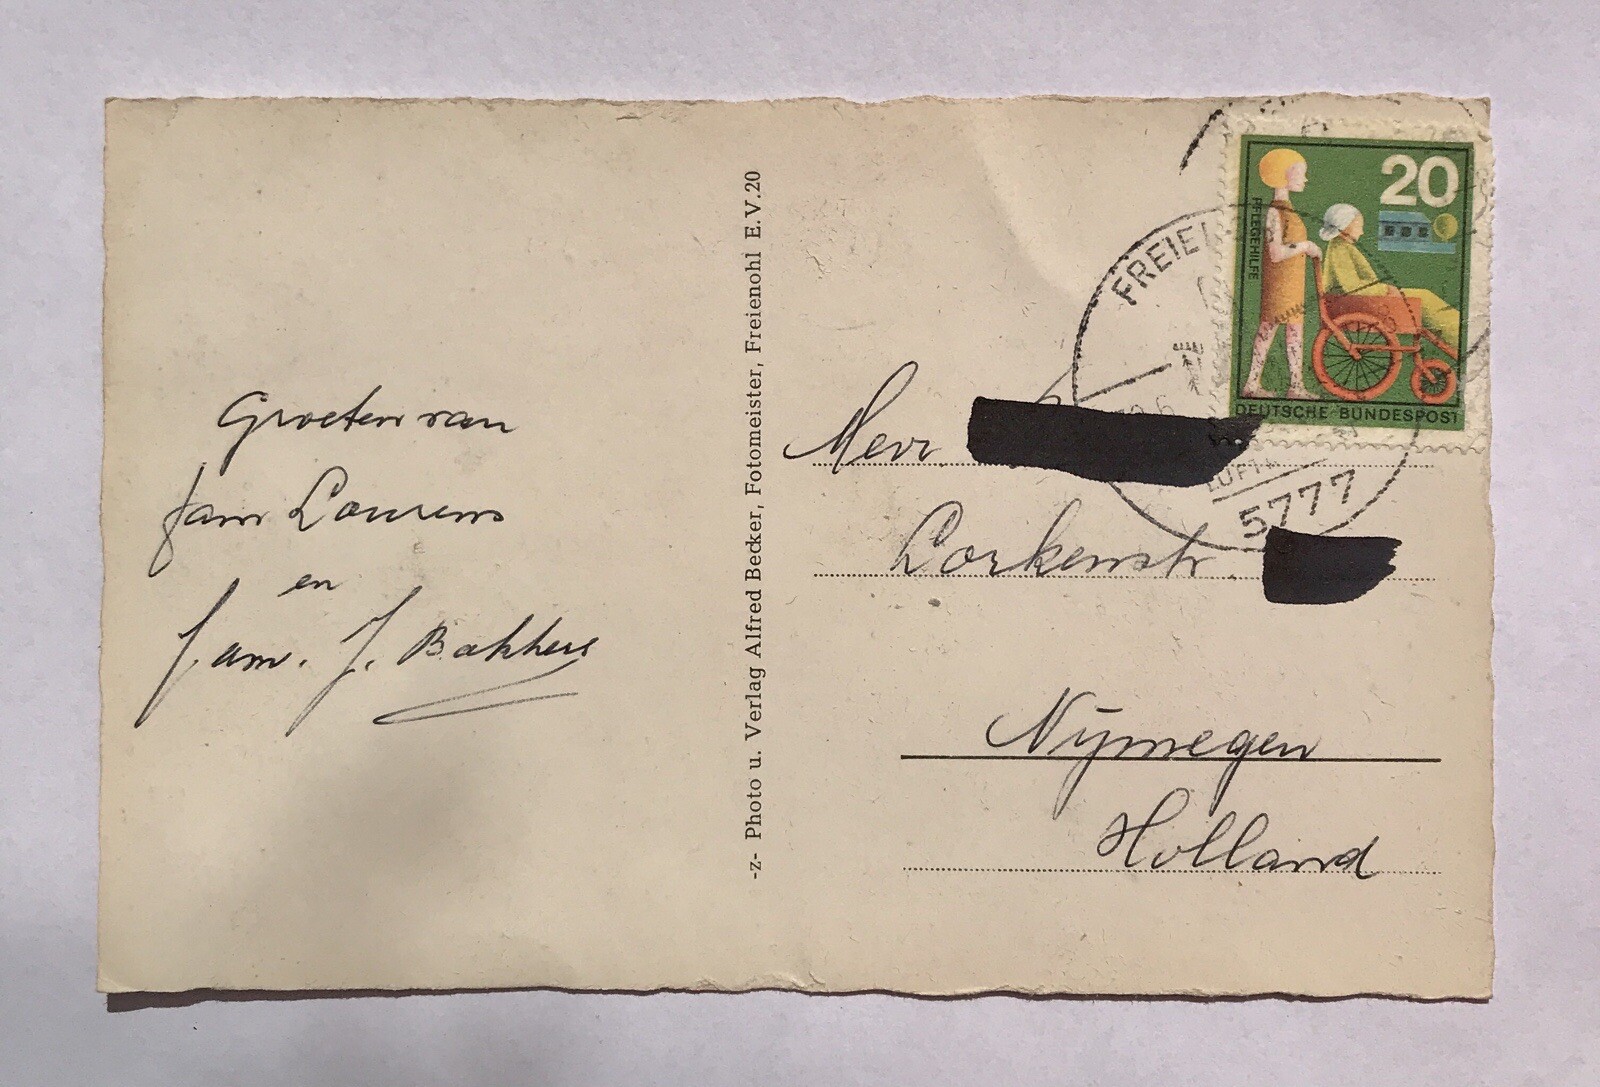 Groeten van
fam Lourens
en
fam. J. Bakkers
-z- Photo u. Verlag Alfred Becker, Fotomeister, Freienohl E.V.20
20
PFLEGEHILFE
DEUTSCHE BUNDESPOST
5777
Mevr.
Lorkenstr.
Nijmegen
Holland